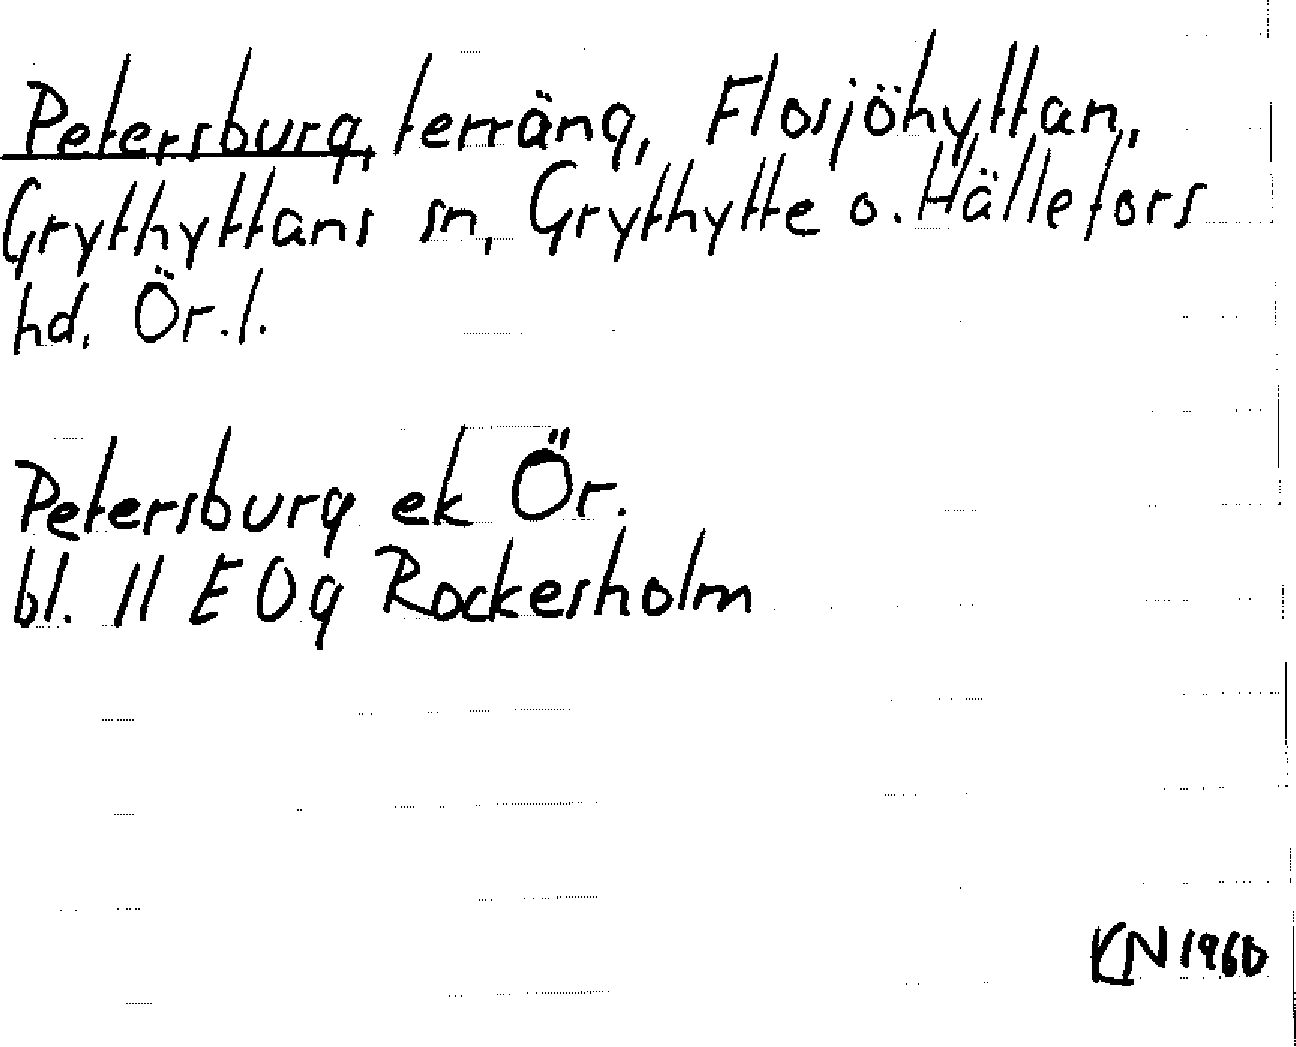 Petersburg, terräng, Flosjöhyttan,
Grythyttans sn, Grythytte o. Hällefors
hd. Ör. l.
Petersburg ek Ör.
bl. 11 E 0g Rockesholm
KN 1960